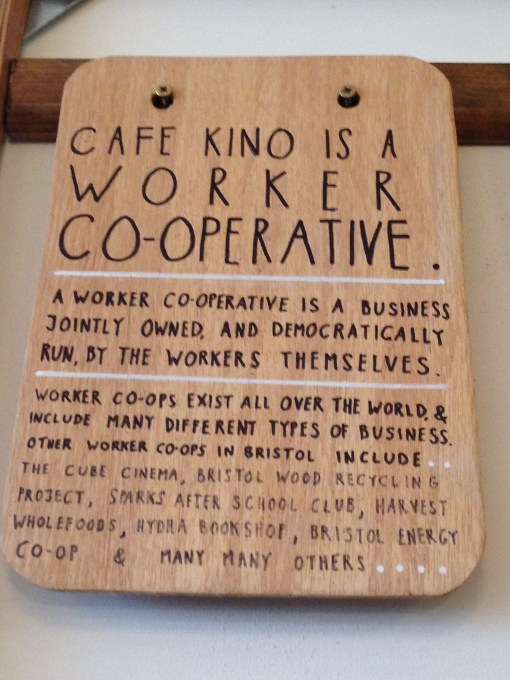 CAFE KINO IS A
WORKER
CO-OPERATIVE.
A WORKER CO-OPERATIVE IS A BUSINESS
JOINTLY OWNED, AND DEMOCRATICALLY
RUN, BY THE WORKERS THEMSELVES.
WORKER CO-OPS EXIST ALL OVER THE WORLD, &
INCLUDE MANY DIFFERENT TYPES OF BUSINESS.
OTHER WORKER CO-OPS IN BRISTOL INCLUDE..
THE CUBE CINEMA, BRISTOL WOOD RECYCLING
PROJECT, SPARKS AFTER SCHOOL CLUB, HARVEST
WHOLEFOODS, HYDRA BOOKSHOP, BRISTOL ENERGY
CO-OP & MANY MANY OTHERS....